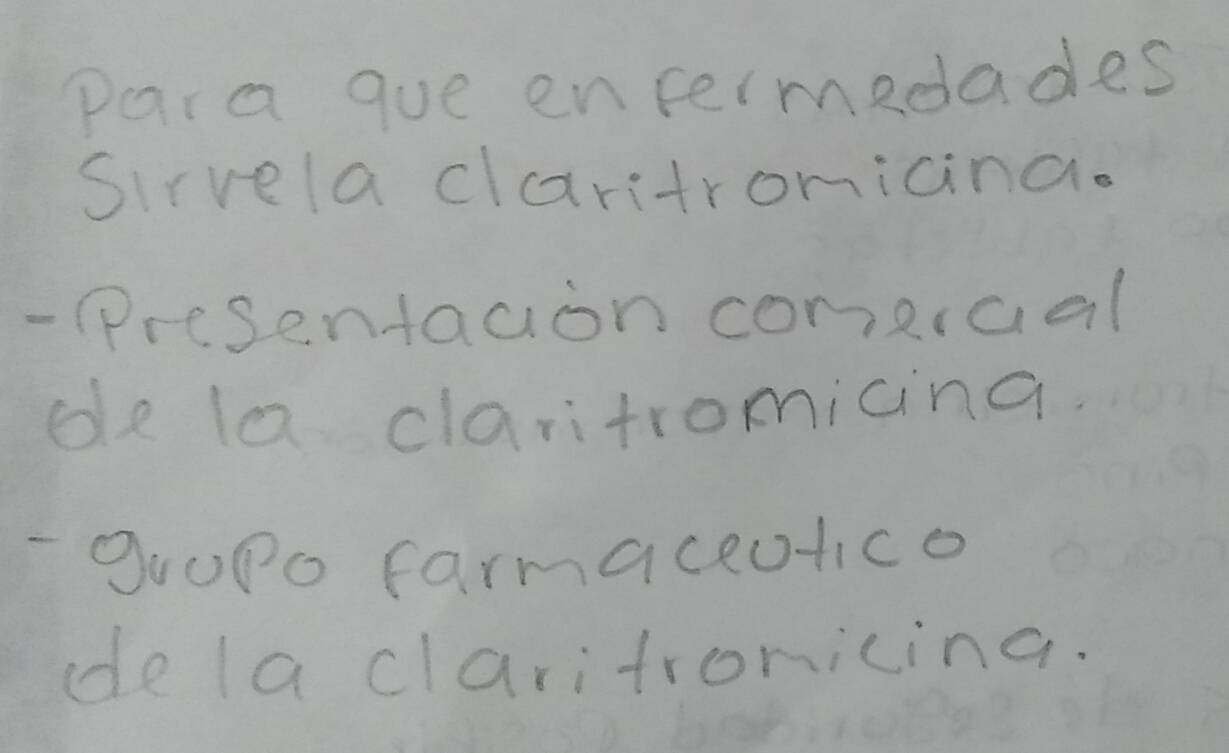 Para que enfermedades
Sirve la claritromicina.
- Presentación comercial
de la claritromicina.
- grupo farmaceutico
de la claritromicina.